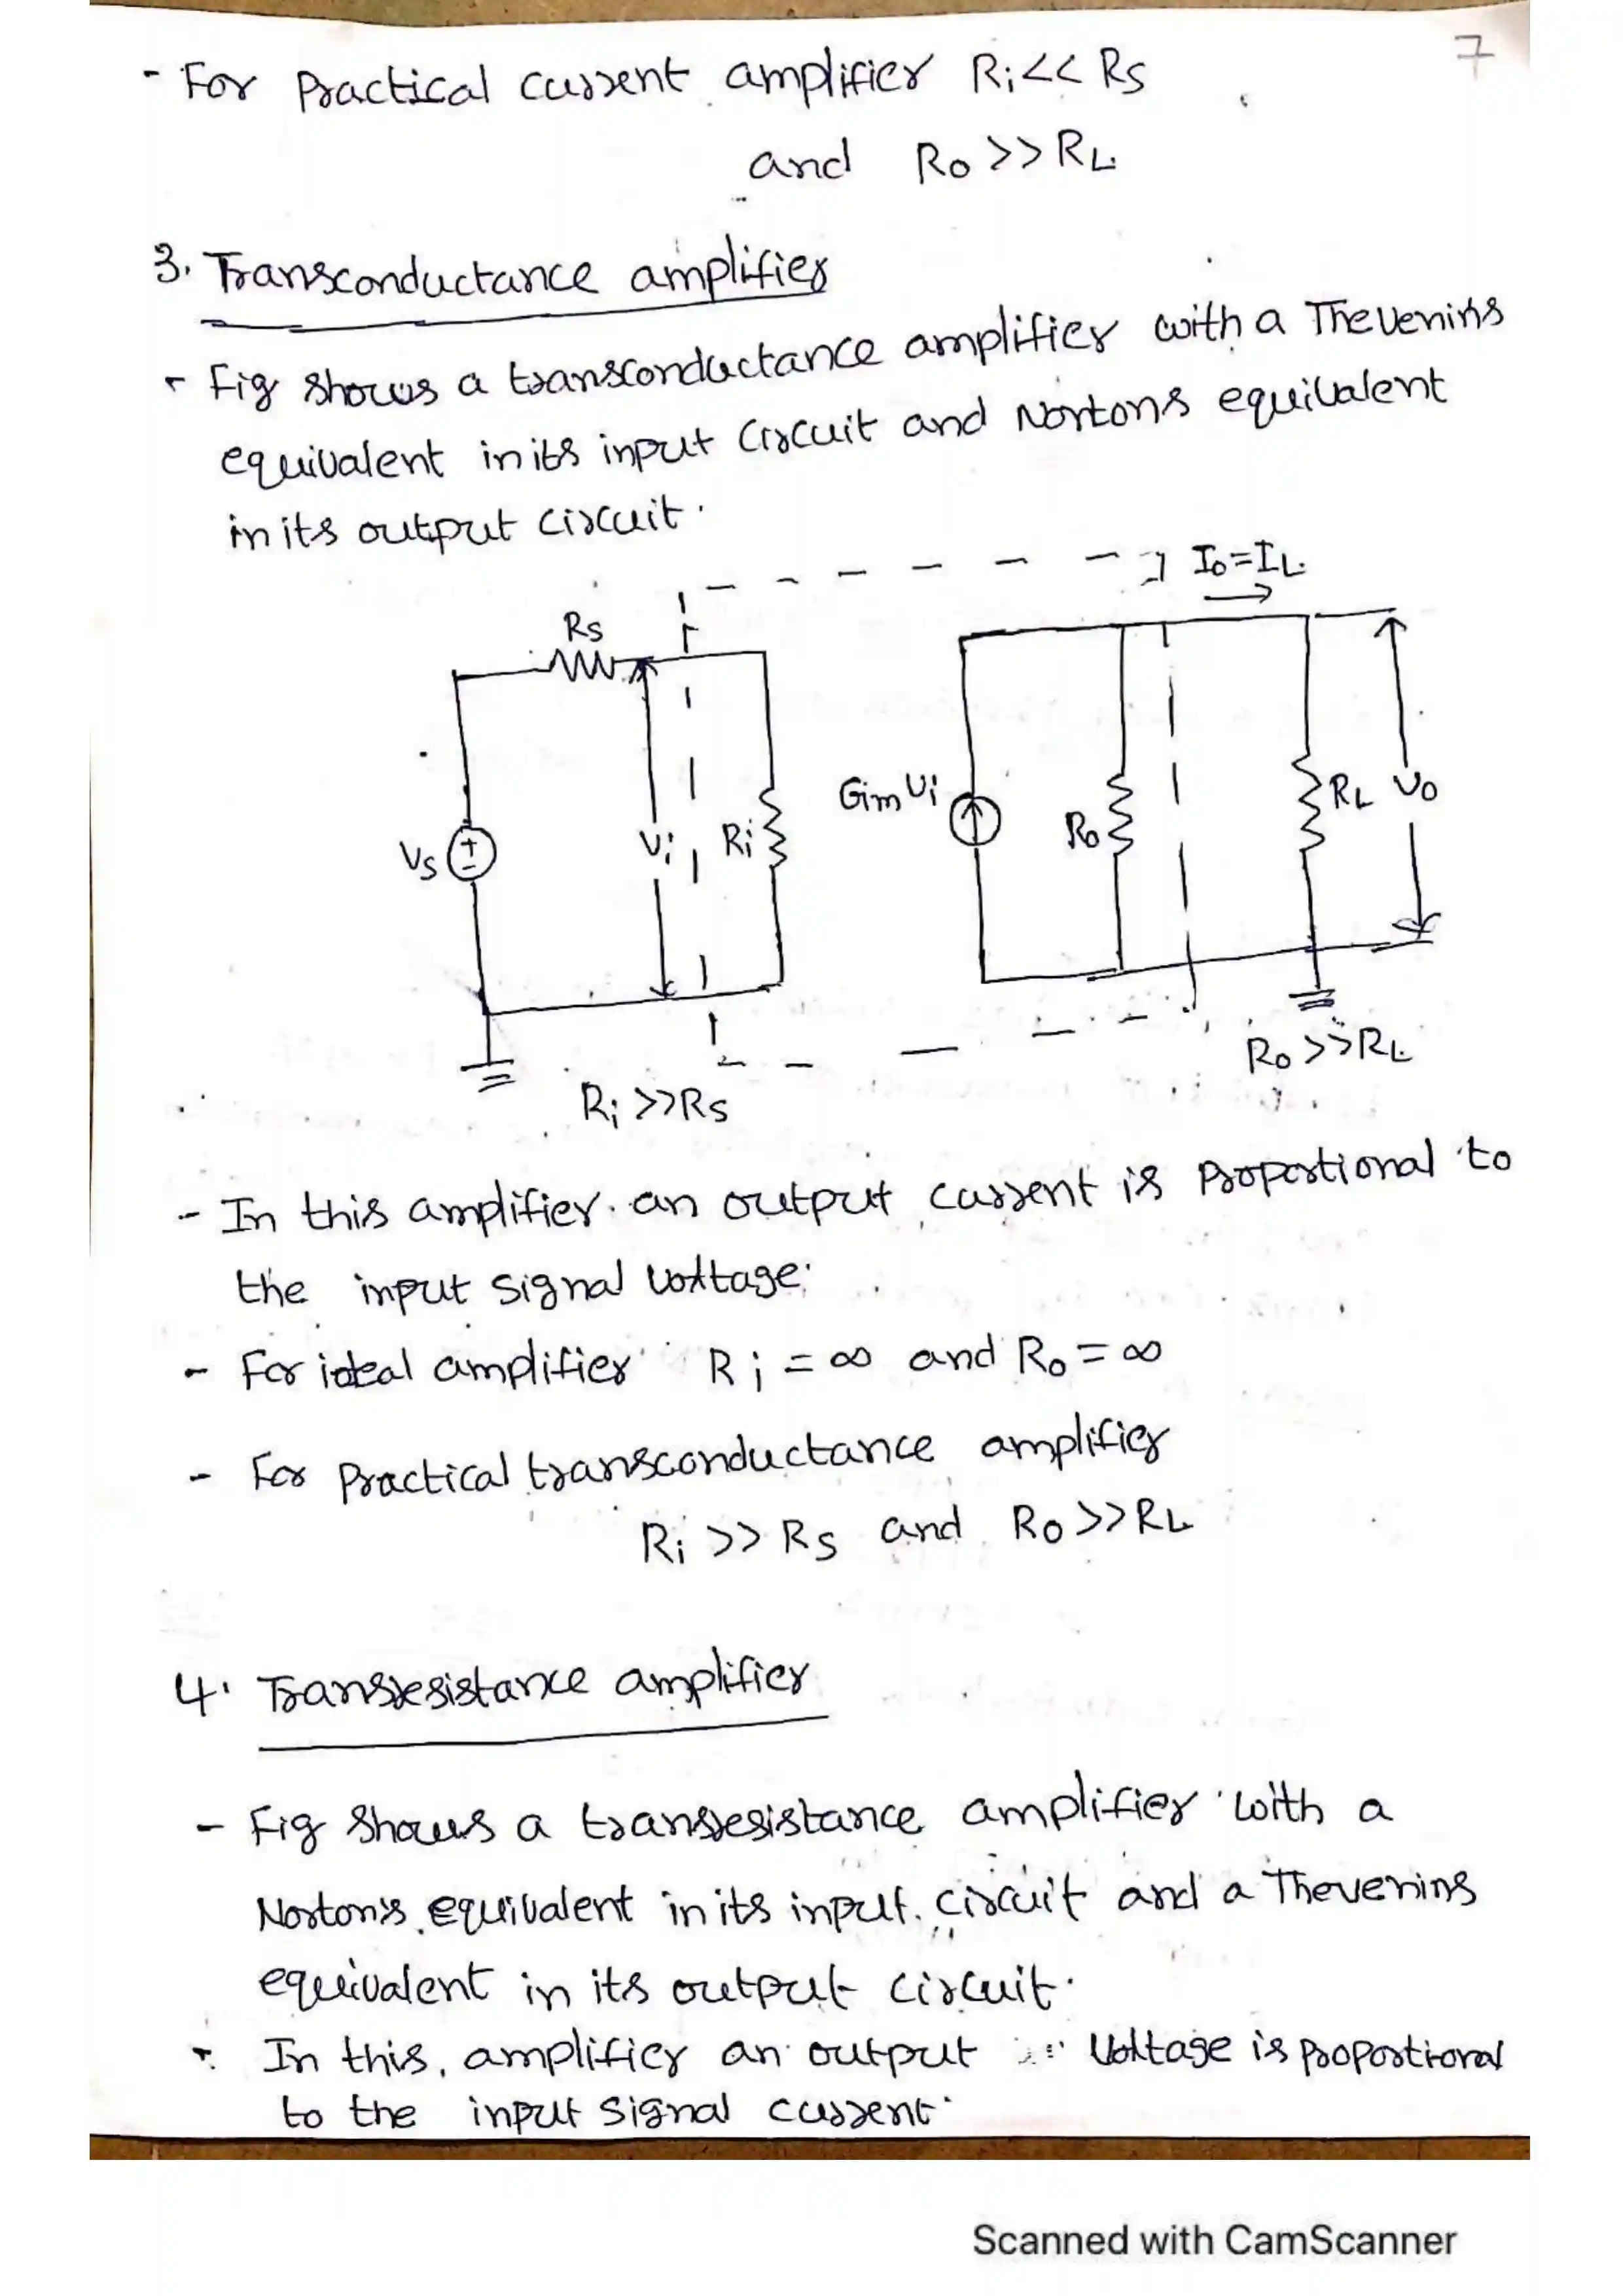 7
- For Practical current amplifier Ri<< RS
and RO >> RL.
3. Transconductance amplifier
- Fig shows a transconductance amplifier with a Thevenins
equivalent in its input Circuit and Nortons equivalent
in its output circuit.
IO=IL.
RS
GmVi
RL
VO
RO
VS
Vi
Ri
RO >>RL
Ri >>RS
- In this amplifier an output current is Proportional to
the input signal voltage.
- For ideal amplifier Ri = ∞ and RO = ∞
- For Practical transconductance amplifier
Ri >> RS and RO >>RL
4. Transresistance amplifier
- Fig Shows a transresistance amplifier with a
Norton's equivalent in its input circuit and a Thevenins
equivalent in its output circuit.
- In this, amplifier an output Voltage is proportional
to the input signal current.
Scanned with CamScanner